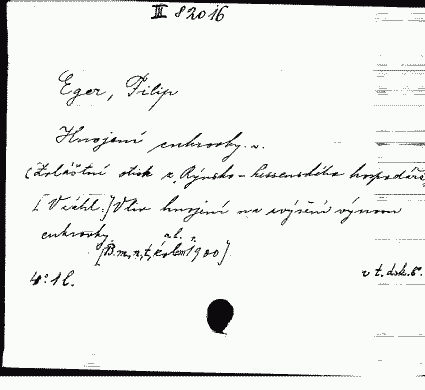 III 82016
Eger, Filip
Hnojení cukrovky.
(Zvláštní otisk z „Rýnsko-hessenského hospodáře
[V záhl.] Vliv hnojení na zvýšení výnosu
cukrovky
[B. m., n., t., kolem r. 1900].
4° 1 l.
v t. dsk. 8°.